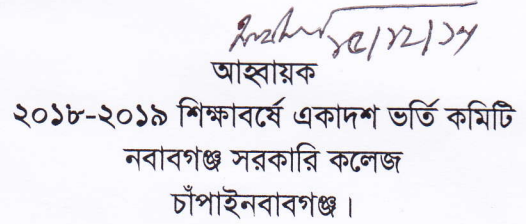 আহ্বায়ক
২০১৮-২০১৯ শিক্ষাবর্ষে একাদশ ভর্তি কমিটি
নবাবগঞ্জ সরকারি কলেজ
চাঁপাইনবাবগঞ্জ।